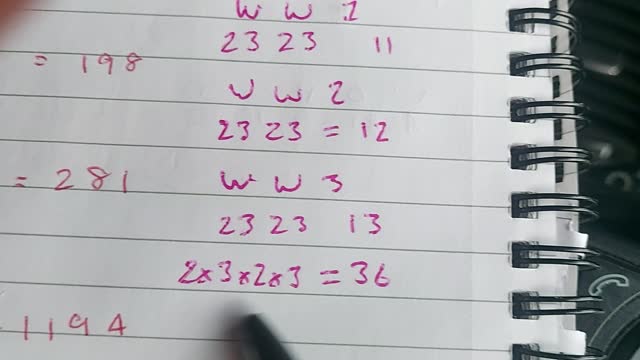 W W 1
23 23 11
= 198
W W 2
23 23 = 12
= 281
W W 3
23 23 13
2x3x2x3 = 36
1194